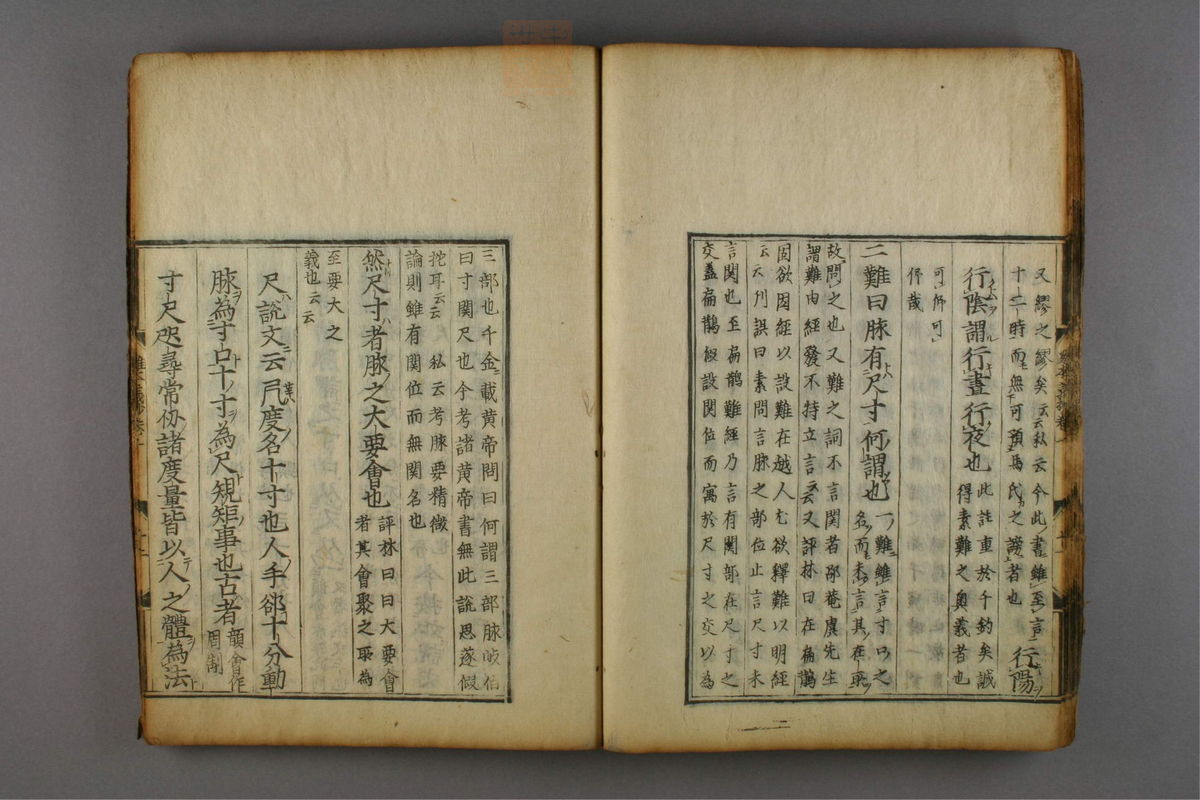 又繆之繆矣云云私云今此書雖至言
十二時而無可預馬氏之謗者也
行陽
行陰謂行晝行夜也
此註重於千鈞矣誠
得素難之奧義者也
可仰可
仰哉
二難曰脉有尺寸何謂也
一難雖言寸口之
名而未言其在
故問之也又難之詞不言関者邵菴虞先生
謂難由經發不特立言云云又評林曰在扁鵲
固欲因經以設難在越人尤欲釋難以明經
云云刋誤曰素問言脉之部位止言尺寸未
言関也至扁鵲難經乃言有関部在尺寸之
交盖扁鵲假設関位而寓於尺寸之交以為
三部也千金載黄帝問曰何謂三部脉岐伯
曰寸関尺也今考諸黄帝書無此說思邈假
托耳云云私云考脉要精微
論則雖有関位而無関名也
然尺寸者脉之大要會也
評林曰曰大要會
者其會聚之為
至要大之
義也云云
尺說文云尺度名十寸也人手郤十分動
脉為寸口十寸為尺規矩事也古者
韻會作
周制
寸尺咫尋常仞諸度量皆以人之體為法